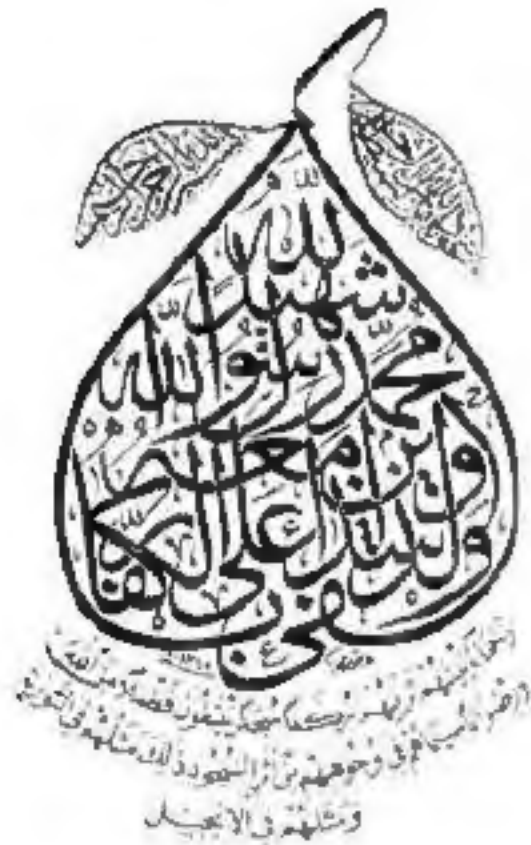 وكفى بالله شهيدا
محمد رسول الله
والذين معه
أشداء على الكفار
بينهم تراهم ركعا سجدا يبتغون فضلا من الله
ورضوانا سيماهم في وجوههم من أثر السجود ذلك مثلهم في التورية
ومثلهم في الانجيل